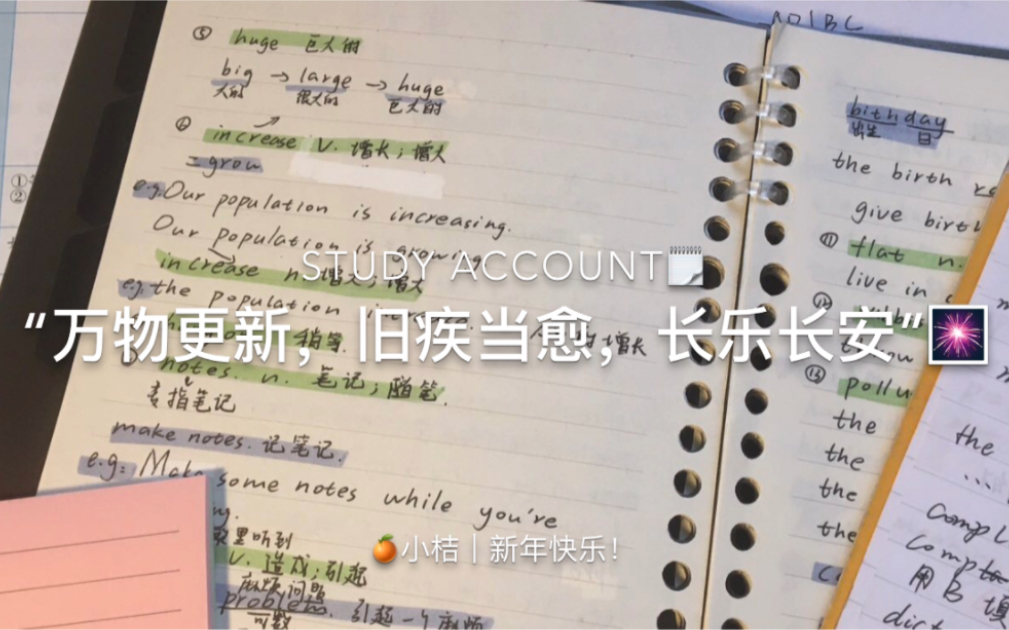 ⑤ huge 巨大的
big → large → huge
大的 很大的 巨大的
⑥ increase v. 增长；增大
= grow
e.g. Our population is increasing.
Our population is growing.
increase n. 增大；增大
e.g. the population
STUDY ACCOUNT
“万物更新，旧疾当愈，长乐长安”
增长
notes. n. 笔记；随笔.
专指笔记
make notes. 记笔记.
e.g: Make some notes while you're
里听到
v. 造成；引起
麻烦问题
problem. 引起一个麻烦
可数
🍊小桔｜新年快乐！
birthday
出生 日
the birth
give birth
⑪ flat n.
live in
⑫
⑬ pollu
the
the
the
the
the
...
comp
用B 填
dict